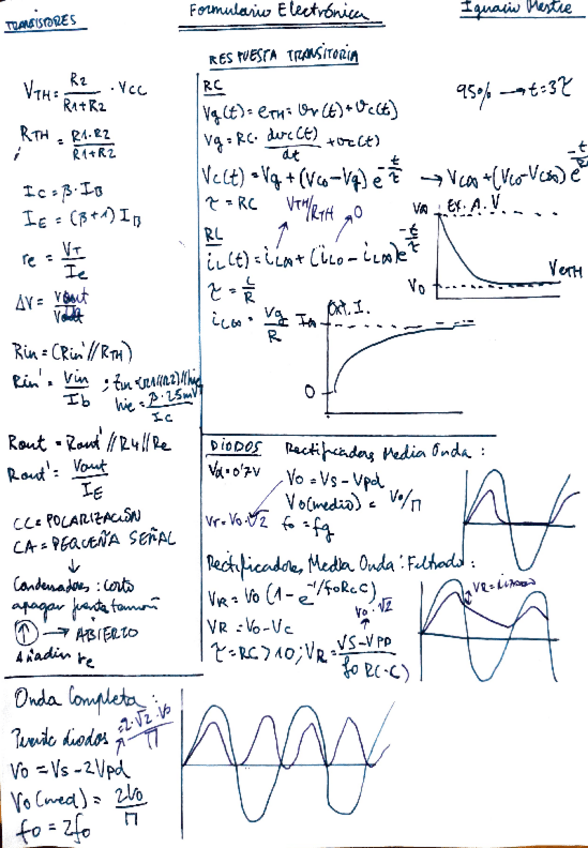 TRANSISTORES
Formulario Electrónica
Ignacio Mestre
VTH = R2/(R1+R2) · VCC
RTH = R1·R2/(R1+R2)
IC = β·IB
IE = (β+1) IB
re = VT/Ie
ΔV =
Rin = (Rin' // RTH)
Rin' = Vin/Ib ; Zin = (R1//R2)//hie
hie = β·25mV/IC
Rout = Rout' // R4 // Re
Rout' = Vout/IE
CC = POLARIZACIÓN
CA = PEQUEÑA SEÑAL
↓
Condensadores: corto
apagar fuente
↑ → ABIERTO
Añadir re
RESPUESTA TRANSITORIA
RC
95% → t=3τ
Vg(t) = eTH = Vr(t) + Vc(t)
Vg = RC · dvc(t)/dt + vc(t)
Vc(t) = Vg + (Vco - Vg) e^-t/τ → Vc∞ + (Vco - Vc∞) e^-t/τ
τ = RC
VTH/RTH
0
RL
iL(t) = iL∞ + (iLo - iL∞) e^-t/τ
τ = L/R
iL∞ = Vg/R
Ex. A. V
VA
V0
VeTH
Ext. I.
I∞
0
DIODOS
Rectificadores Media Onda:
Vd = 0'7V
Vo = Vs - Vpd
Vo(medio) = Vo/π
Vr = Vo·√2
fo = fg
Rectificadores Media Onda: Filtrado:
VR = Vo (1 - e^-1/foRcC)
Vo·√2
VR = Vo - Vc
τ = RC > 10 ; VR = (VS - VPD)/(fo RC·C)
Onda Completa:
Puente diodos
= 2·√2·Vo/π
Vo = Vs - 2Vpd
Vo(med) = 2Vo/π
fo = 2fo